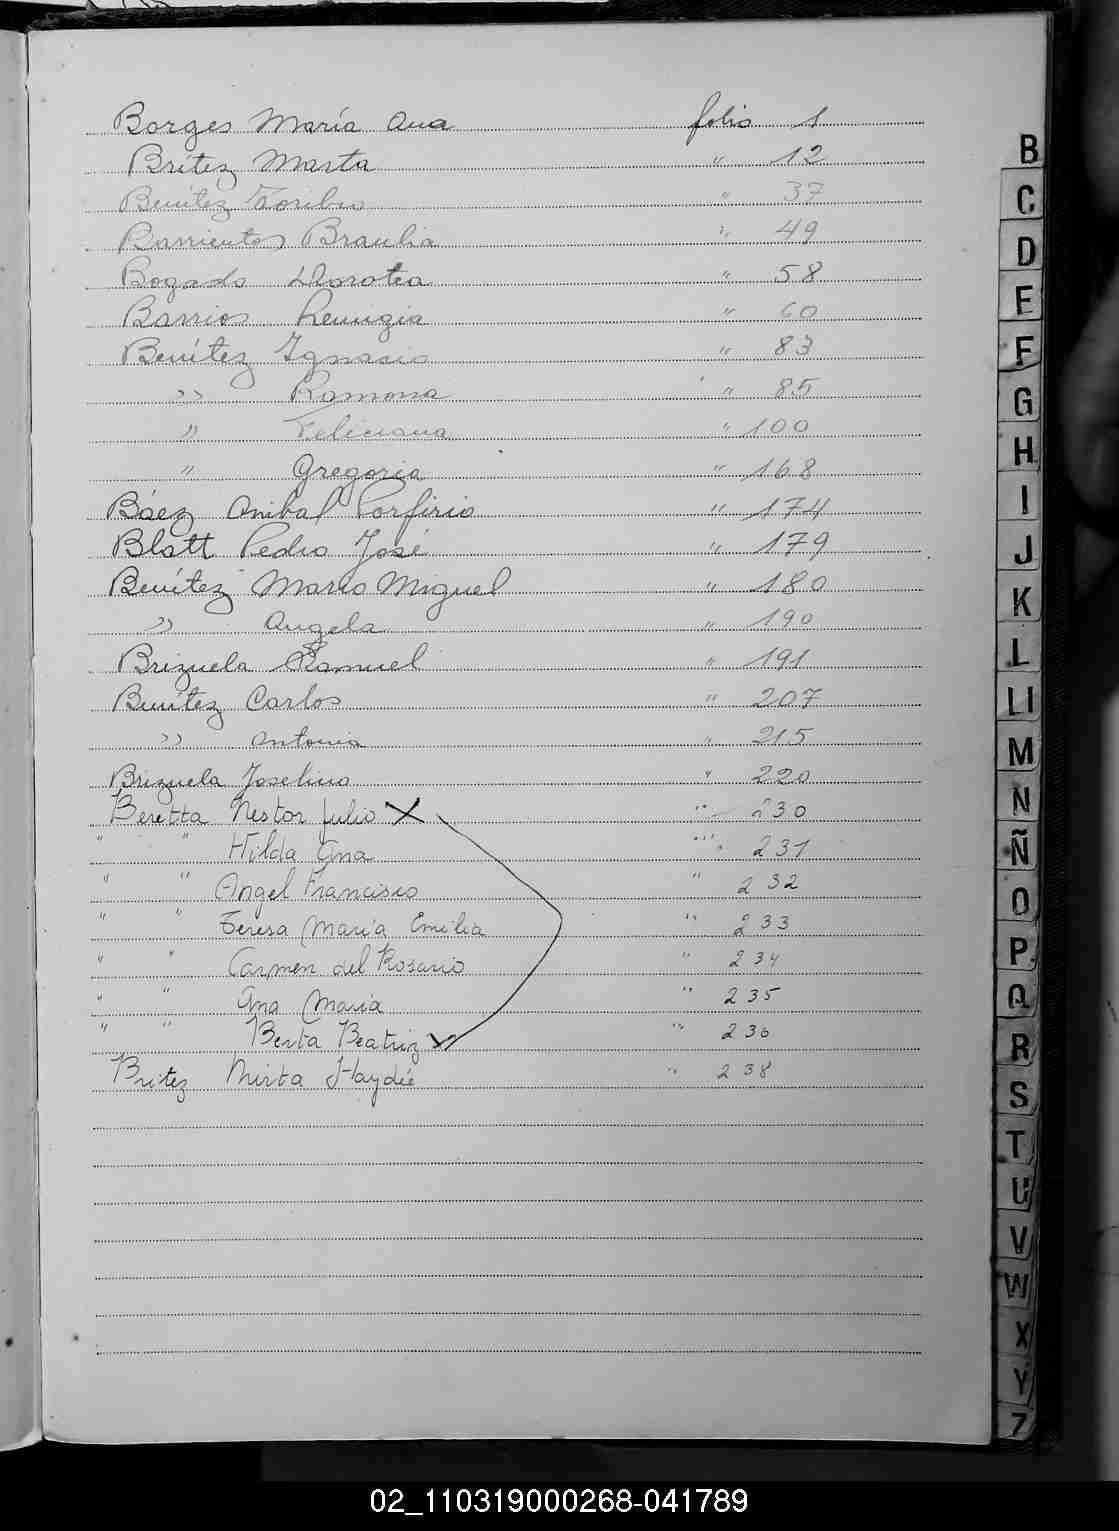 Borges María Ana folio 1
Brítez Marta " 12
Benítez Toribio " 37
Barrientos Braulia " 49
Bogado Dorotea " 58
Barrios Remigia " 60
Benítez Ignacio " 83
" Ramona " 85
" Feliciana " 100
" Gregoria " 168
Báez Anibal Porfirio " 174
Blatt Pedro José " 179
Benítez Mario Miguel " 180
" Angela " 190
Brizuela Ramuel " 191
Benítez Carlos " 207
" Antonia " 215
Brizuela Joselino " 220
Beretta Nestor Julio X " 230
" " Hilda Ana " 231
" " Angel Francisco " 232
" " Teresa María Emilia " 233
" " Carmen del Rosario " 234
" " Ana María " 235
" " Berta Beatriz " 236
Britez Mirta Haydée " 238
B
C
D
E
F
G
H
I
J
K
L
Ll
M
N
Ñ
O
P
Q
R
S
T
U
V
W
X
Y
Z
02_110319000268-041789